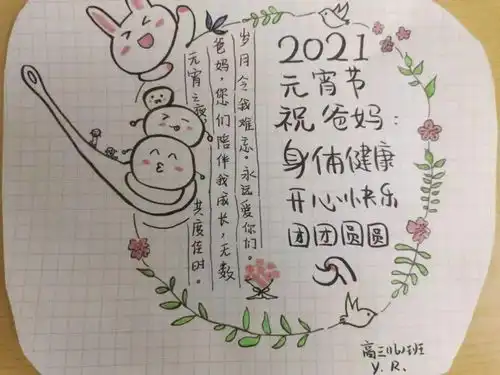 2021
元宵节
祝爸妈：
身体健康
开心快乐
团团圆圆
元宵之夜，共度佳时。
爸妈，您们陪伴我成长，无数
岁月令我难忘。永远爱你们。
高三(16)班
Y.R.